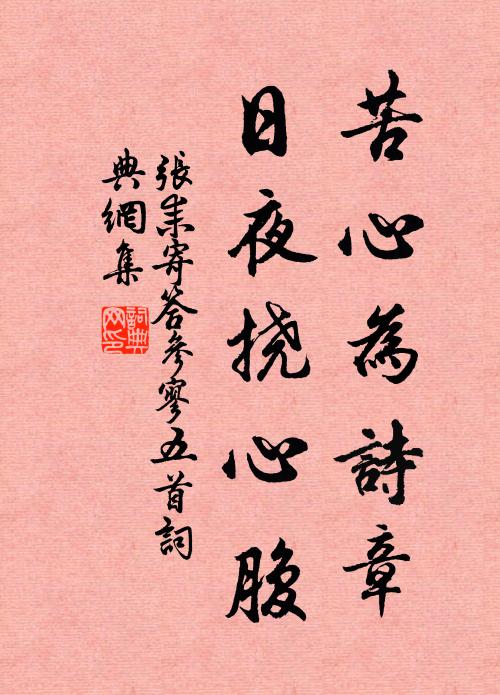 苦心為詩章
日夜撓心腹
張耒寄答參寥五首詞
典網集
詞典
网印